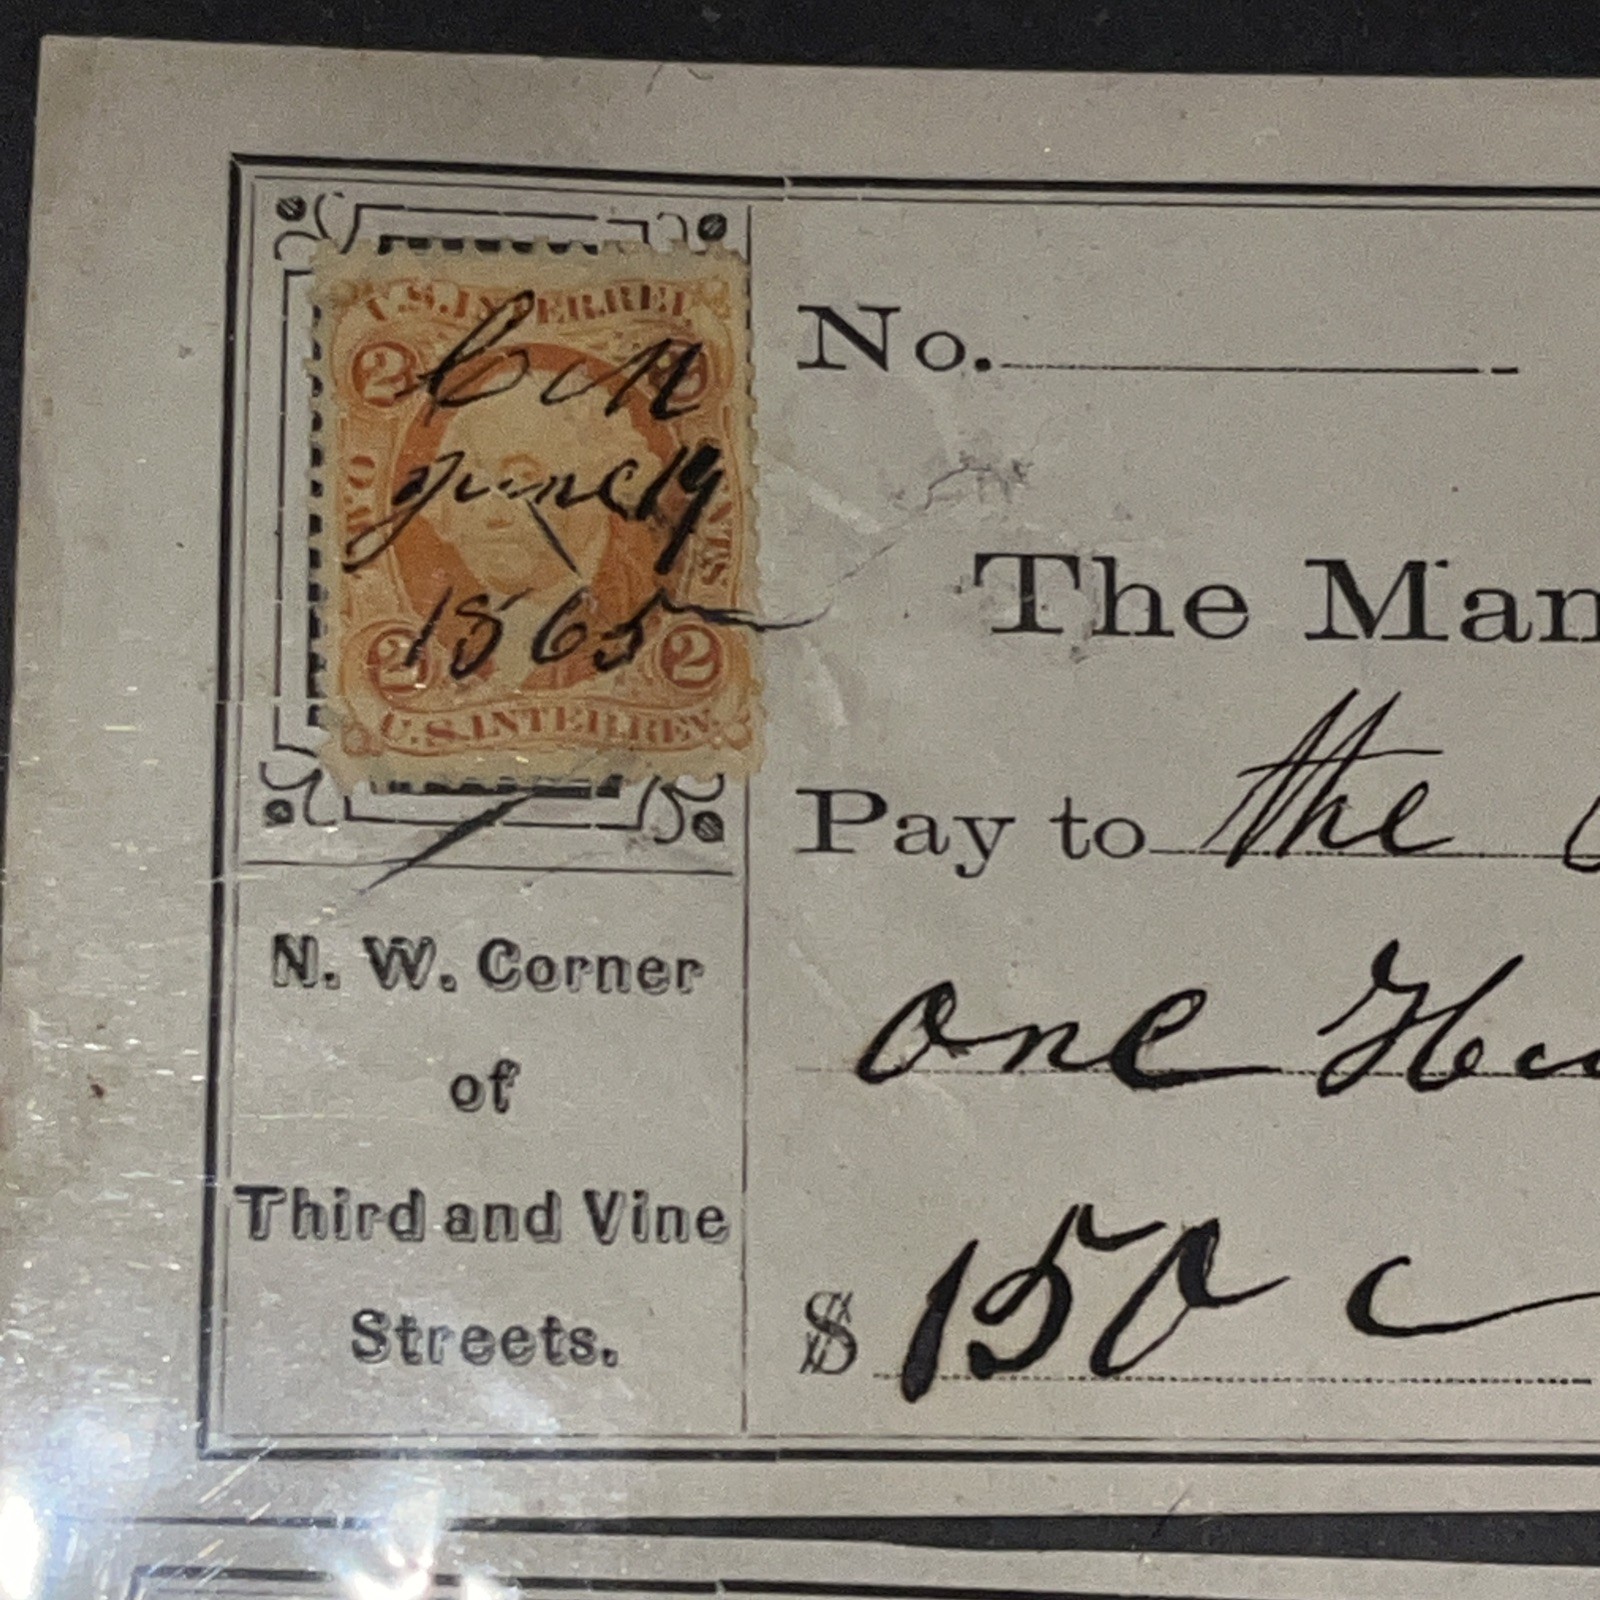 U.S. INTER. REV.
2 2
C M
June 19
1865
TWO CENTS
2 2
U.S. INTER. REV.
No.
The Man
Pay to the
one Hu
$ 150
N. W. Corner
of
Third and Vine
Streets.